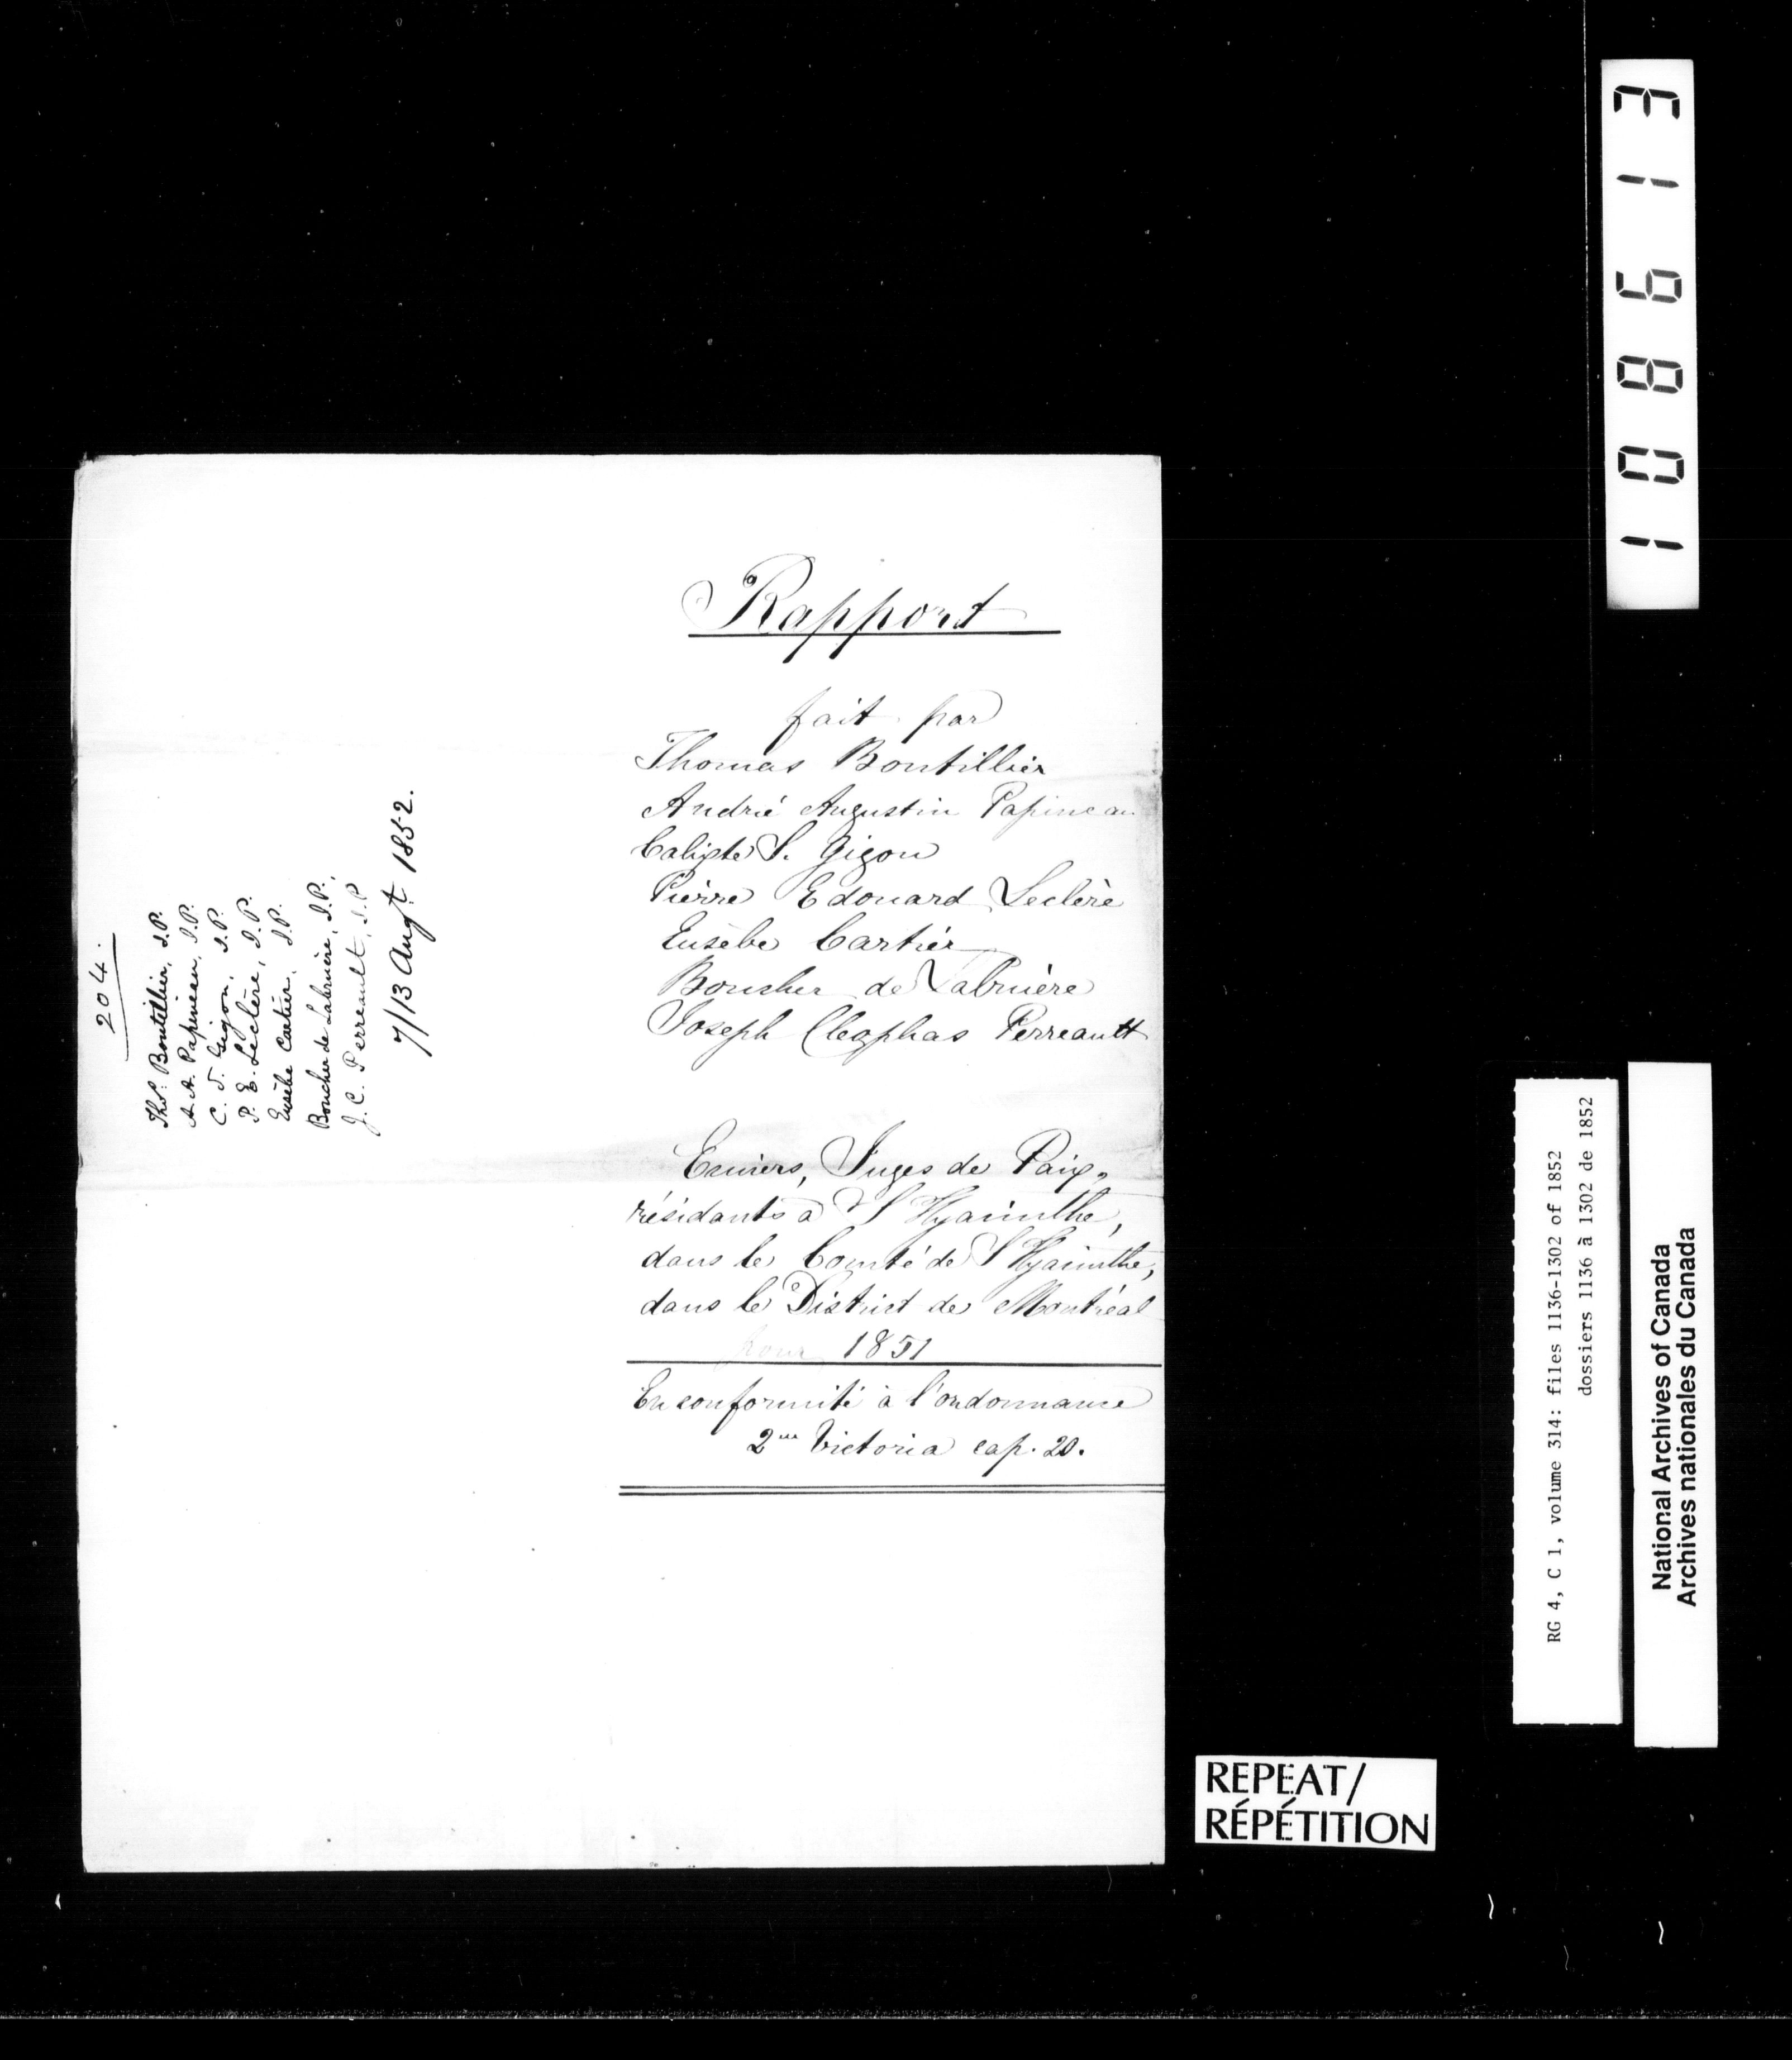 Rapport
fait par
Thomas Boutillier
André Augustin Papineau
Calixte S. Gigon
Pierre Edouard Leclère
Eusèbe Cartier
Boucher de Labruère
Joseph Cleophas Perreault
Ecuiers, Juges de Paix,
résidants à St Hyacinthe,
dans le Comté de St Hyacinthe,
dans le District de Montréal
pour 1851
En conformité à l'ordonnance
2me Victoria cap. 20.
204.
Thos. Boutillier, J.P.
A. A. Papineau, J.P.
C. S. Gigon, J.P.
P. E. Leclère, J.P.
Eusèbe Cartier, J.P.
Boucher de Labruère, J.P.
J. C. Perreault, J.P.
7/13 Augt 1852.
108613
RG 4, C 1, volume 314: files 1136-1302 of 1852
dossiers 1136 à 1302 de 1852
National Archives of Canada
Archives nationales du Canada
REPEAT/
RÉPÉTITION